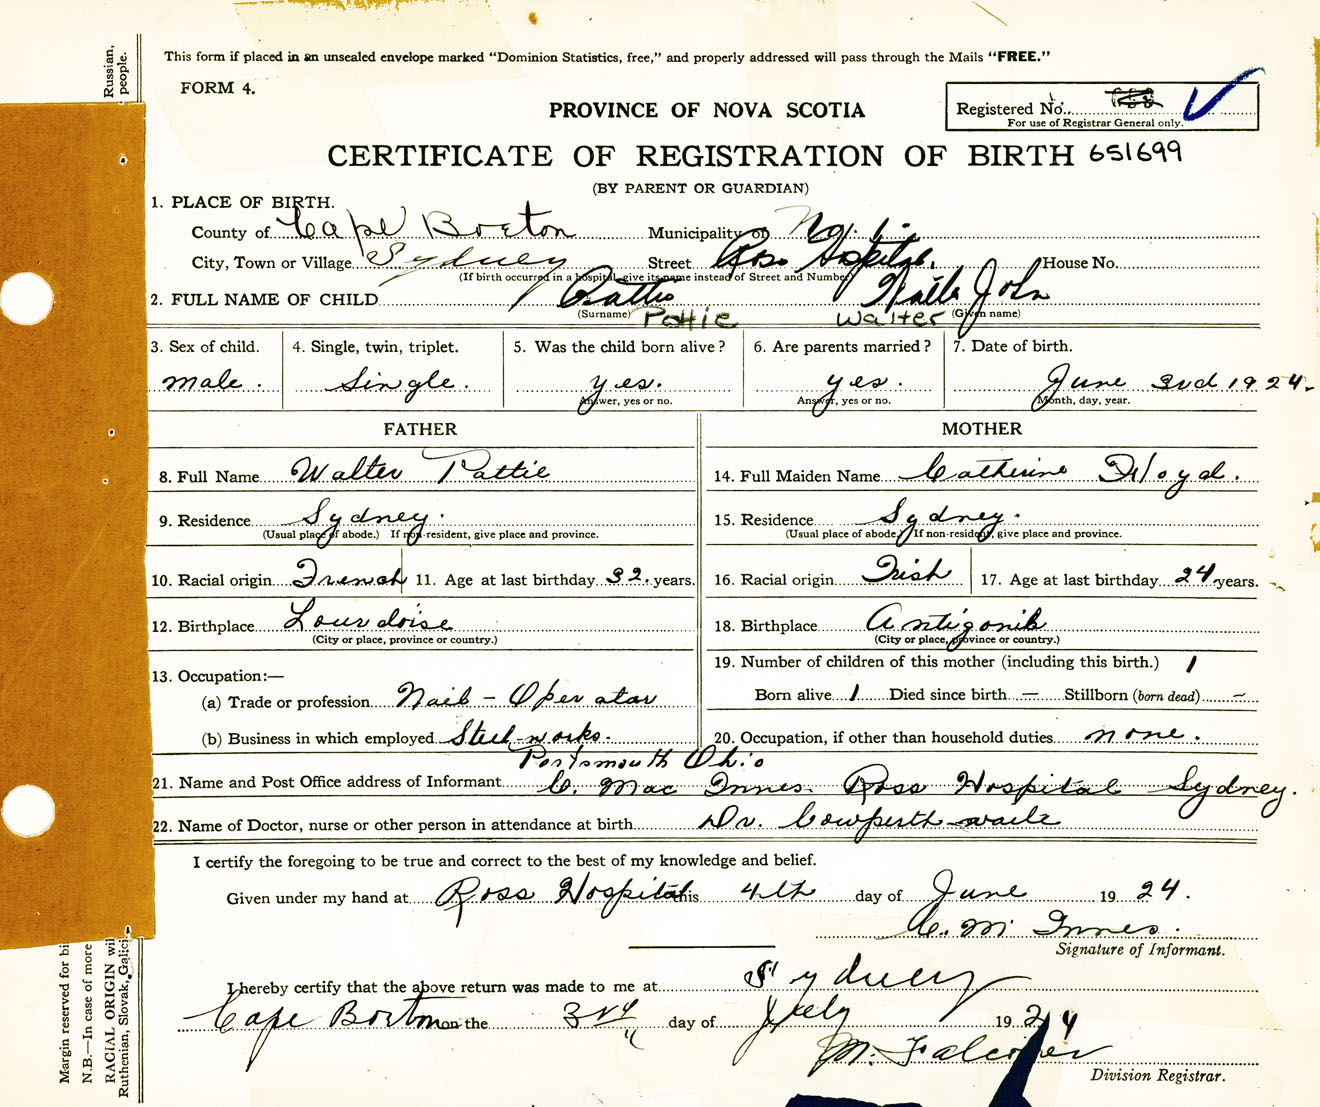 This form if placed in an unsealed envelope marked "Dominion Statistics, free," and properly addressed will pass through the Mails "FREE."
FORM 4.
PROVINCE OF NOVA SCOTIA
Registered No.
For use of Registrar General only.
CERTIFICATE OF REGISTRATION OF BIRTH 651699
(BY PARENT OR GUARDIAN)
1. PLACE OF BIRTH.
County of Cape Breton Municipality of
City, Town or Village Sydney Street Ross Hospital. House No.
(If birth occurred in a hospital, give its name instead of Street and Number)
2. FULL NAME OF CHILD Pattie Walter John
(Surname) Pattie Walter (Given name)
3. Sex of child. 4. Single, twin, triplet. 5. Was the child born alive? 6. Are parents married? 7. Date of birth.
male. Single. yes. yes. June 3rd 1924.
Answer, yes or no. Answer, yes or no. Month, day, year.
FATHER MOTHER
8. Full Name Walter Pattie 14. Full Maiden Name Catherine Floyd.
9. Residence Sydney. 15. Residence Sydney.
(Usual place of abode.) If non-resident, give place and province. (Usual place of abode.) If non-resident, give place and province.
10. Racial origin French 11. Age at last birthday 32. years. 16. Racial origin Irish 17. Age at last birthday 24. years.
12. Birthplace Lourdoise 18. Birthplace Antigonik
(City or place, province or country.) (City or place, province or country.)
13. Occupation:— 19. Number of children of this mother (including this birth.) 1
(a) Trade or profession Nail - Operator Born alive 1 Died since birth — Stillborn (born dead) ~
(b) Business in which employed Steel-works. 20. Occupation, if other than household duties none.
Portsmouth Ohio
21. Name and Post Office address of Informant C. Mac Innes. Ross Hospital Sydney.
22. Name of Doctor, nurse or other person in attendance at birth Dr. Cowperth-waite
I certify the foregoing to be true and correct to the best of my knowledge and belief.
Given under my hand at Ross Hospital this 4th day of June 1924.
C. M Innes.
Signature of Informant.
I hereby certify that the above return was made to me at Sydney
Cape Breton on the 3rd day of July 1924
M. Falconer
Division Registrar.
Russian,
people.
Margin reserved for bi
N.B.—In case of more
RACIAL ORIGIN wil
Ruthenian, Slovak, Galici